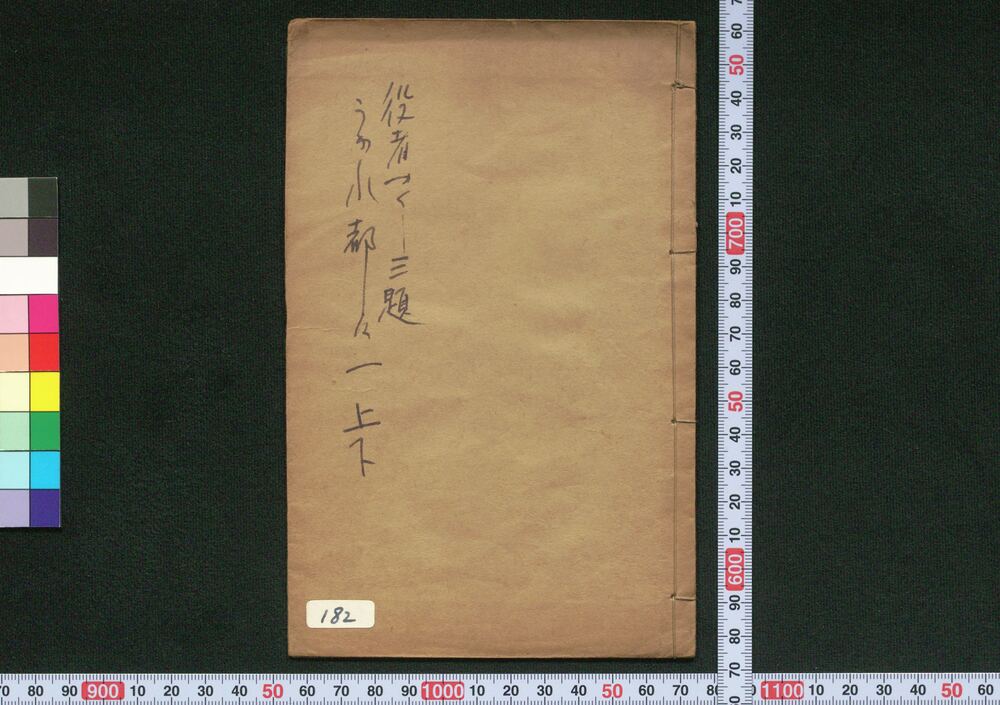 役者つくし三題
都々一 上下
182
60 50 40 30 20 10 700 90 80 70 60 50 40 30 20 10 600 90 80 70
70 80 90 900 10 20 30 40 50 60 70 80 90 1000 10 20 30 40 50 60 70 80 1100 10 20 30 40 50 60